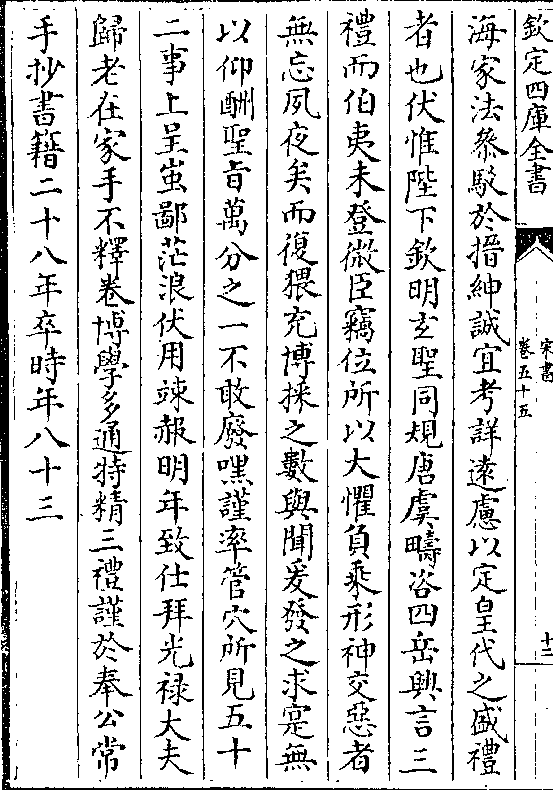 欽定四庫全書
宋書
卷五十五
十二
海家法叅駮於搢紳誠宜考詳遠慮以定皇代之盛禮
者也伏惟陛下欽明玄聖同規唐虞疇咨四岳興言三
禮而伯夷未登微臣竊位所以大懼負乘形神交惡者
無忘夙夜矣而復猥充博採之數與聞爰發之求寔無
以仰酬聖旨萬分之一不敢廢嘿謹率管穴所見五十
二事上呈蚩鄙茫浪伏用竦赧明年致仕拜光禄大夫
歸老在家手不釋卷博學多通特精三禮謹於奉公常
手抄書籍二十八年卒時年八十三